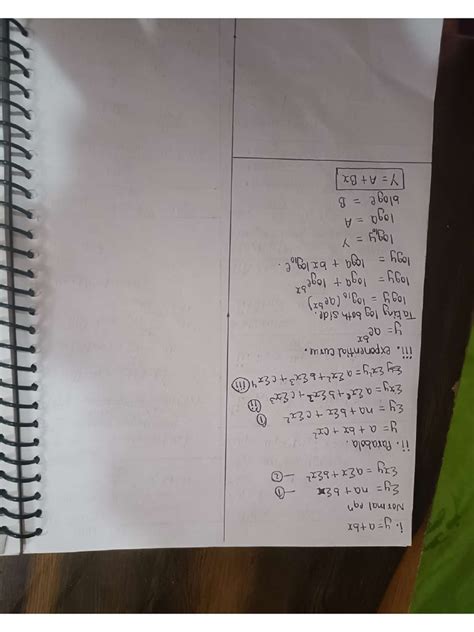 i. y = a + bx
Normal eqⁿ
Σy = na + bΣx — ①
Σxy = aΣx + bΣx² — ②
ii. Parabola.
y = a + bx + cx²
Σy = na + bΣx + cΣx² ⓘ
Σxy = aΣx + bΣx² + cΣx³ ⓘⓘ
= aΣx² + bΣx³ + cΣx⁴ (iii)
iii. exponential curve.
y = ae^bx
Taking log both side.
logy = log₁₀ (ae^bx)
logy = loga + loge^bx
logy = loga + bx log₁₀e.
log₁₀y = Y
loga = A
bloge = B
Y = A + Bx